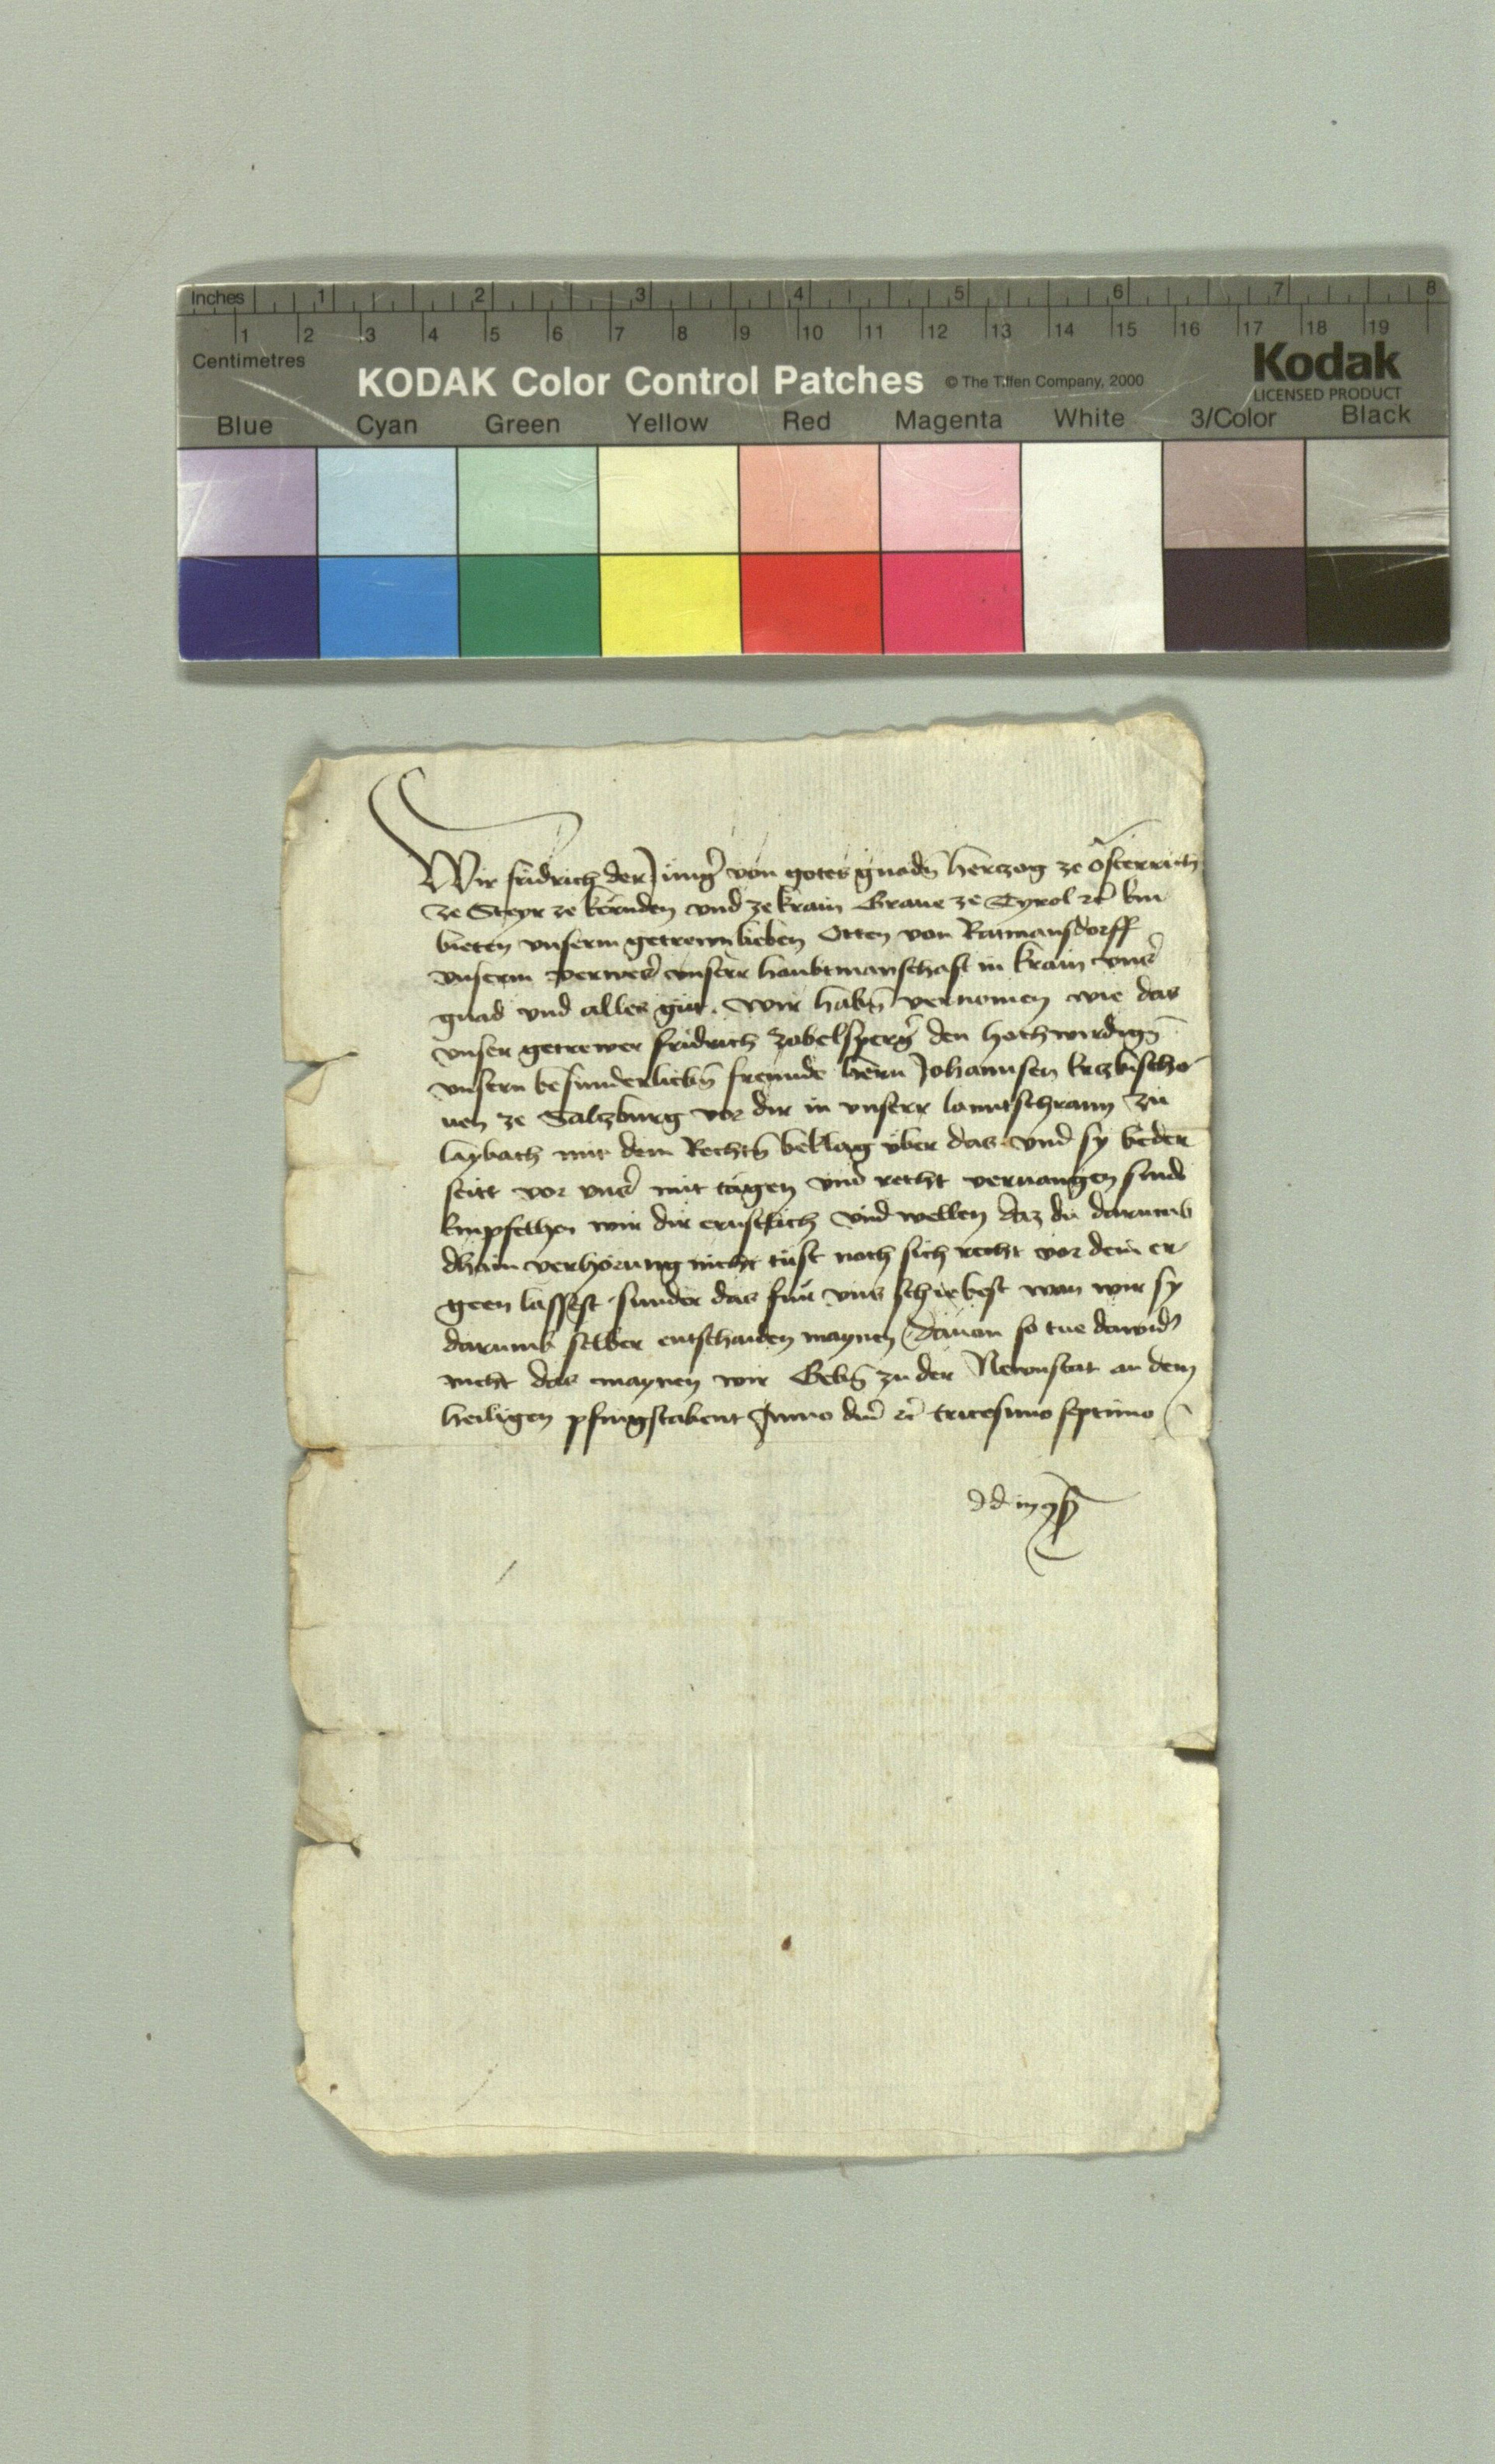 Inches 1 2 3 4 5 6 7 8
1 2 3 4 5 6 7 8 9 10 11 12 13 14 15 16 17 18 19
Centimetres
KODAK Color Control Patches © The Tiffen Company, 2000 Kodak
LICENSED PRODUCT
Blue Cyan Green Yellow Red Magenta White 3/Color Black
Wir fridrich der Jung̉ von gotes gnadn̄ herczog ze Österreich
ze Steyr ze kernden vnd ze krain Graue ze Tyrol ꝛc̄ Em
bieten vnserm getrewn lieben Otten von Ratmansdorff
vnserm verwes̉ vnserr haubtmanschaft in krain vns̉
gnad vnd alles gut. Wir habn̄ vernomen wie das
vnser getrewer fridrich Zobelsperg̉ den hochwirdign̄
vnsern besunderliebn̄ freunde hern Johannsen Erczbischo
uen ze Salczburg vor dir in vnserr lanntschrann zu
laybach mit dem Rechtn̄ beklag über das vnd sy beder
seitt vor vns̉ mit tägen vnd recht veruangen sind
Empfelhen wir dir ernstlich vnd wellen daz du darumb
dhain verhörung nicht tüst noch sich recht vor dem er
geen lassest sunder das für vns schiebest wan wir sy
darumb selber entschaiden maynen dauon so tue dawid̉
nicht das maynen wir Gebn̄ zu der Newnstat an dem
heiligen phingstabent Anno dm̄ ꝛc̄ tricesimo septimo
d d in